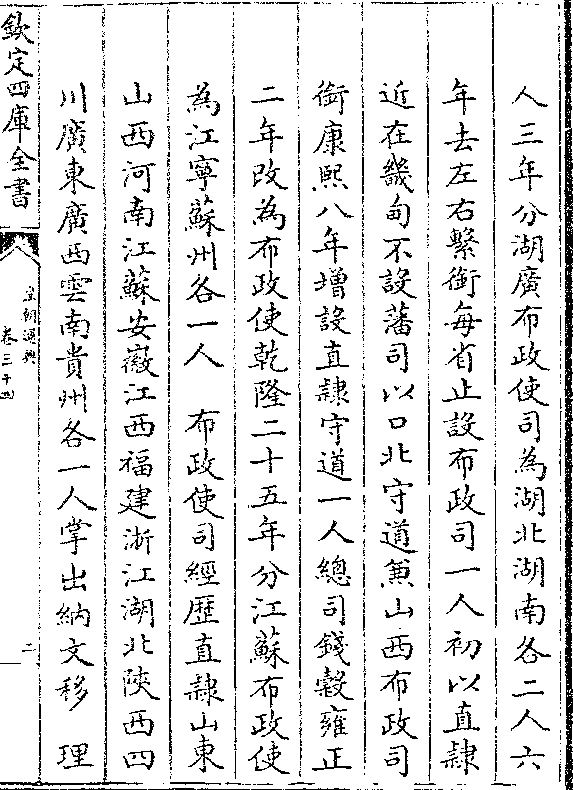 人三年分湖廣布政使司為湖北湖南各二人六
年去左右繫銜每省止設布政司一人初以直隸
近在畿甸不設藩司以口北守道兼山西布政司
銜康熙八年增設直隸守道一人總司錢穀雍正
二年改為布政使乾隆二十五年分江蘇布政使
為江寧蘇州各一人　布政使司經歴直隸山東
山西河南江蘇安徽江西福建浙江湖北陝西四
川廣東廣西雲南貴州各一人掌出納文移　理
欽定四庫全書
皇朝通典
卷三十四
二